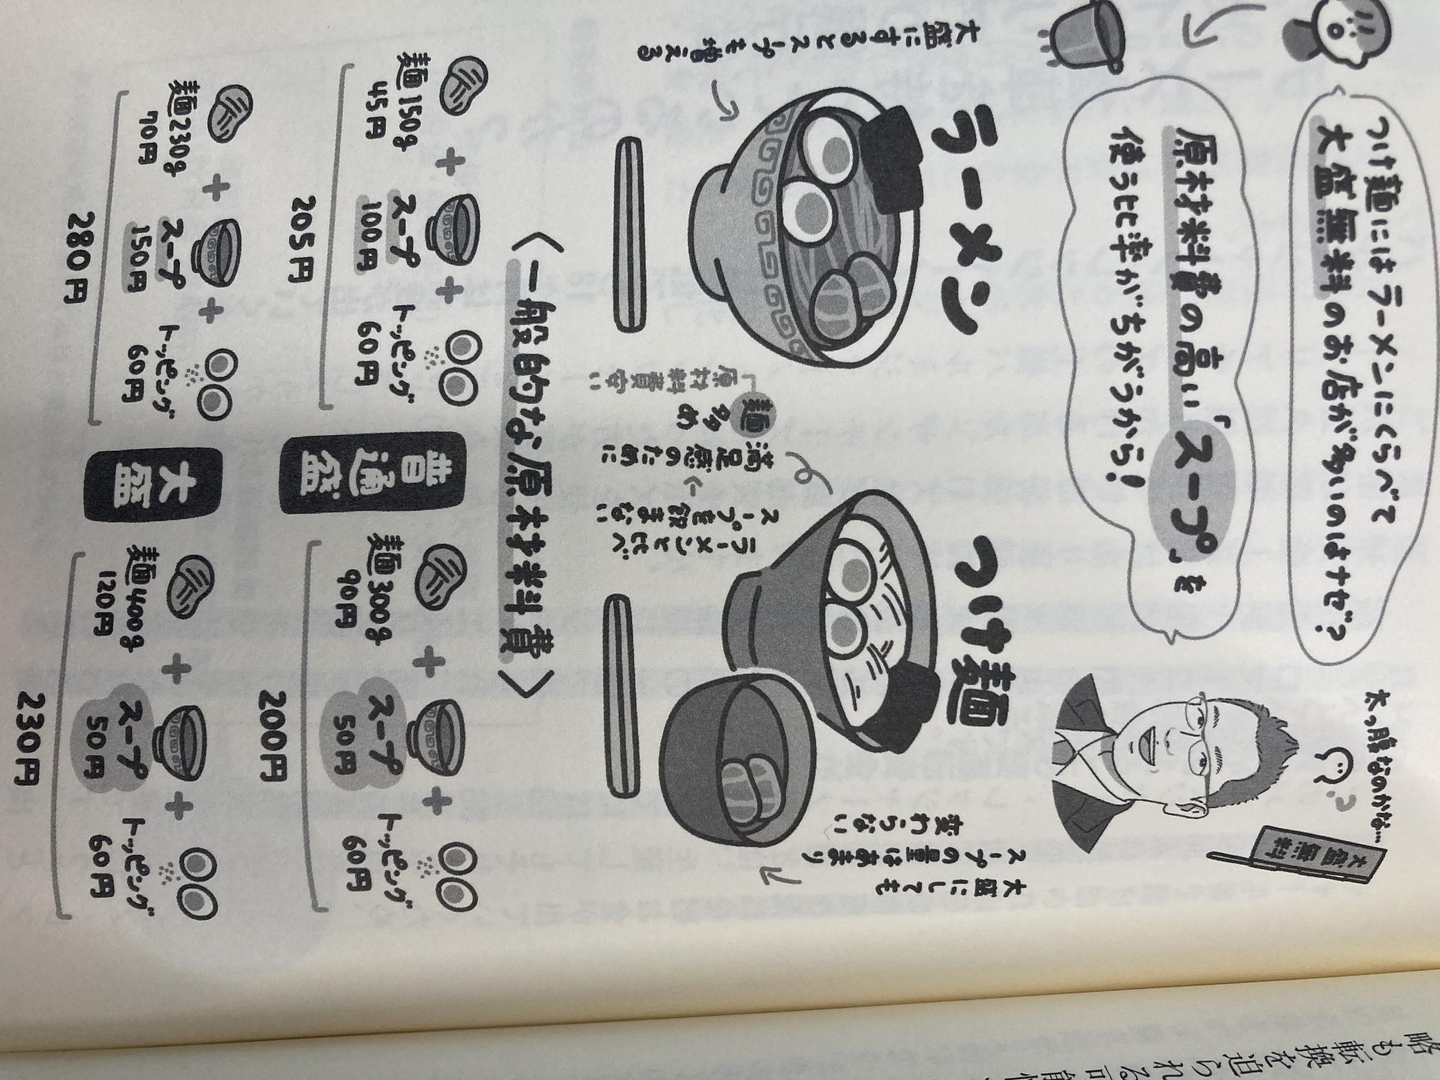 つけ麺にはラーメンにくらべて
大盛無料のお店が多いのはナゼ?
太っ腹なのかな…
大盛無料
原材料費の高い「スープ」を
使う比率がちがうから!
ラーメン
つけ麺
大盛にするとスープも増える
大盛にしても
スープの量はあまり
変わらない
ラーメンと比べ
スープを飲まない
↓
満足感のために
麺多め
「原材料費安い
〈一般的な原材料費〉
普通盛
麺150g
45円
+
スープ
100円
+
トッピング
60円
205円
麺300g
90円
+
スープ
50円
+
トッピング
60円
200円
大盛
麺230g
70円
+
スープ
150円
+
トッピング
60円
280円
麺400g
120円
+
スープ
50円
+
トッピング
60円
230円